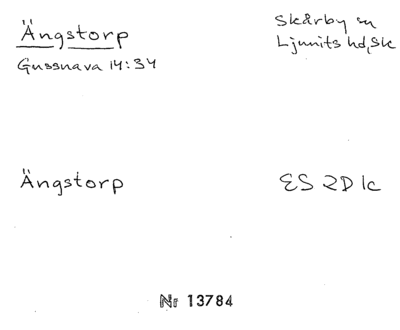 Ängstorp
Gussnava 14:34
Skårby sn
Ljunits hd, Sk
Ängstorp
ES 2D 1c
Nr 13784